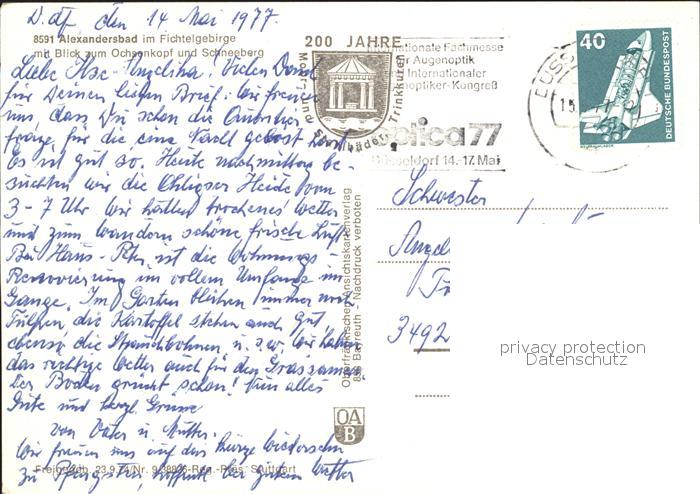 D.df, den 14 Mai 1977.
8591 Alexandersbad im Fichtelgebirge
mit Blick zum Ochsenkopf und Schneeberg
Liebe Ilse-Angelika! Vielen Dank
für Deinen lieben Brief. Wir freuen
uns, dass Du schon die
frage, für die eine Nacht gelöst hast.
Es ist gut so. Heute nachmittag be-
suchten wir die Ohligser Heide von
3-7 Uhr. Wir hatten trockenes Wetter
und zum wandern schöne frische Luft.
Bei Hans-Peter ist die Wohnungs-
Renovierung im vollem Umfange im
Gange. Im Garten blühen immer noch
Tulpen, die Kartoffel stehen auch gut
ebenso die Strauchbohnen u.s.w. Wir haben
das richtige Wetter auch für den Grassamen.
Der Boden grünt schon! Nun alles
Gute und herzl. Grüsse
von Vater u. Mutter.
Wir freuen uns auf das Wiedersehn
zu Pfingsten, hoffentl. bei gutem Wetter
Freigegeb. 23.9.74/Nr. Reg.-Präs. Stuttgart
200 JAHRE
Moor und Heilbäder
Trinkkuren
Internationale Fachmesse
für Augenoptik
Internationaler
Augenoptiker-Kongreß
optica 77
Düsseldorf 14.-17. Mai
DÜSS
15
40
DEUTSCHE BUNDESPOST
Oberfränkischer Ansichtskartenverlag
Bayreuth - Nachdruck verboten
OA
B
Schwester
Angel
3492
privacy protection
Datenschutz